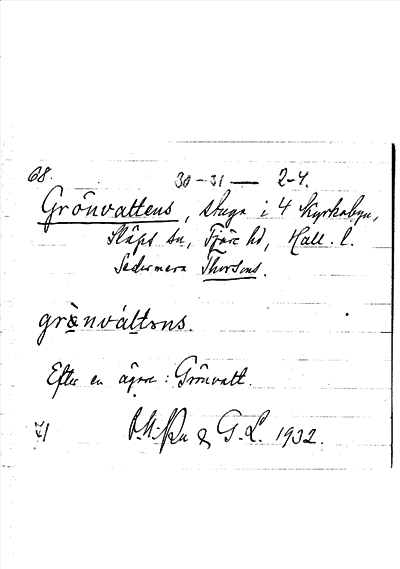 68.
30–31 — 2–4.
Grönvattens, stuga i 4 Kyrkobyn,
Släps sn, Fjäre hd, Hall. l.
Sedermera Thorsens.
grö̀nvát​tɜns.
Efter en ägare: Grönvatt.
71
& G. L. 1932.